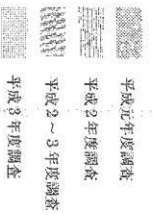 平成元年度調査
平成２年度調査
平成２～３年度調査
平成３年度調査